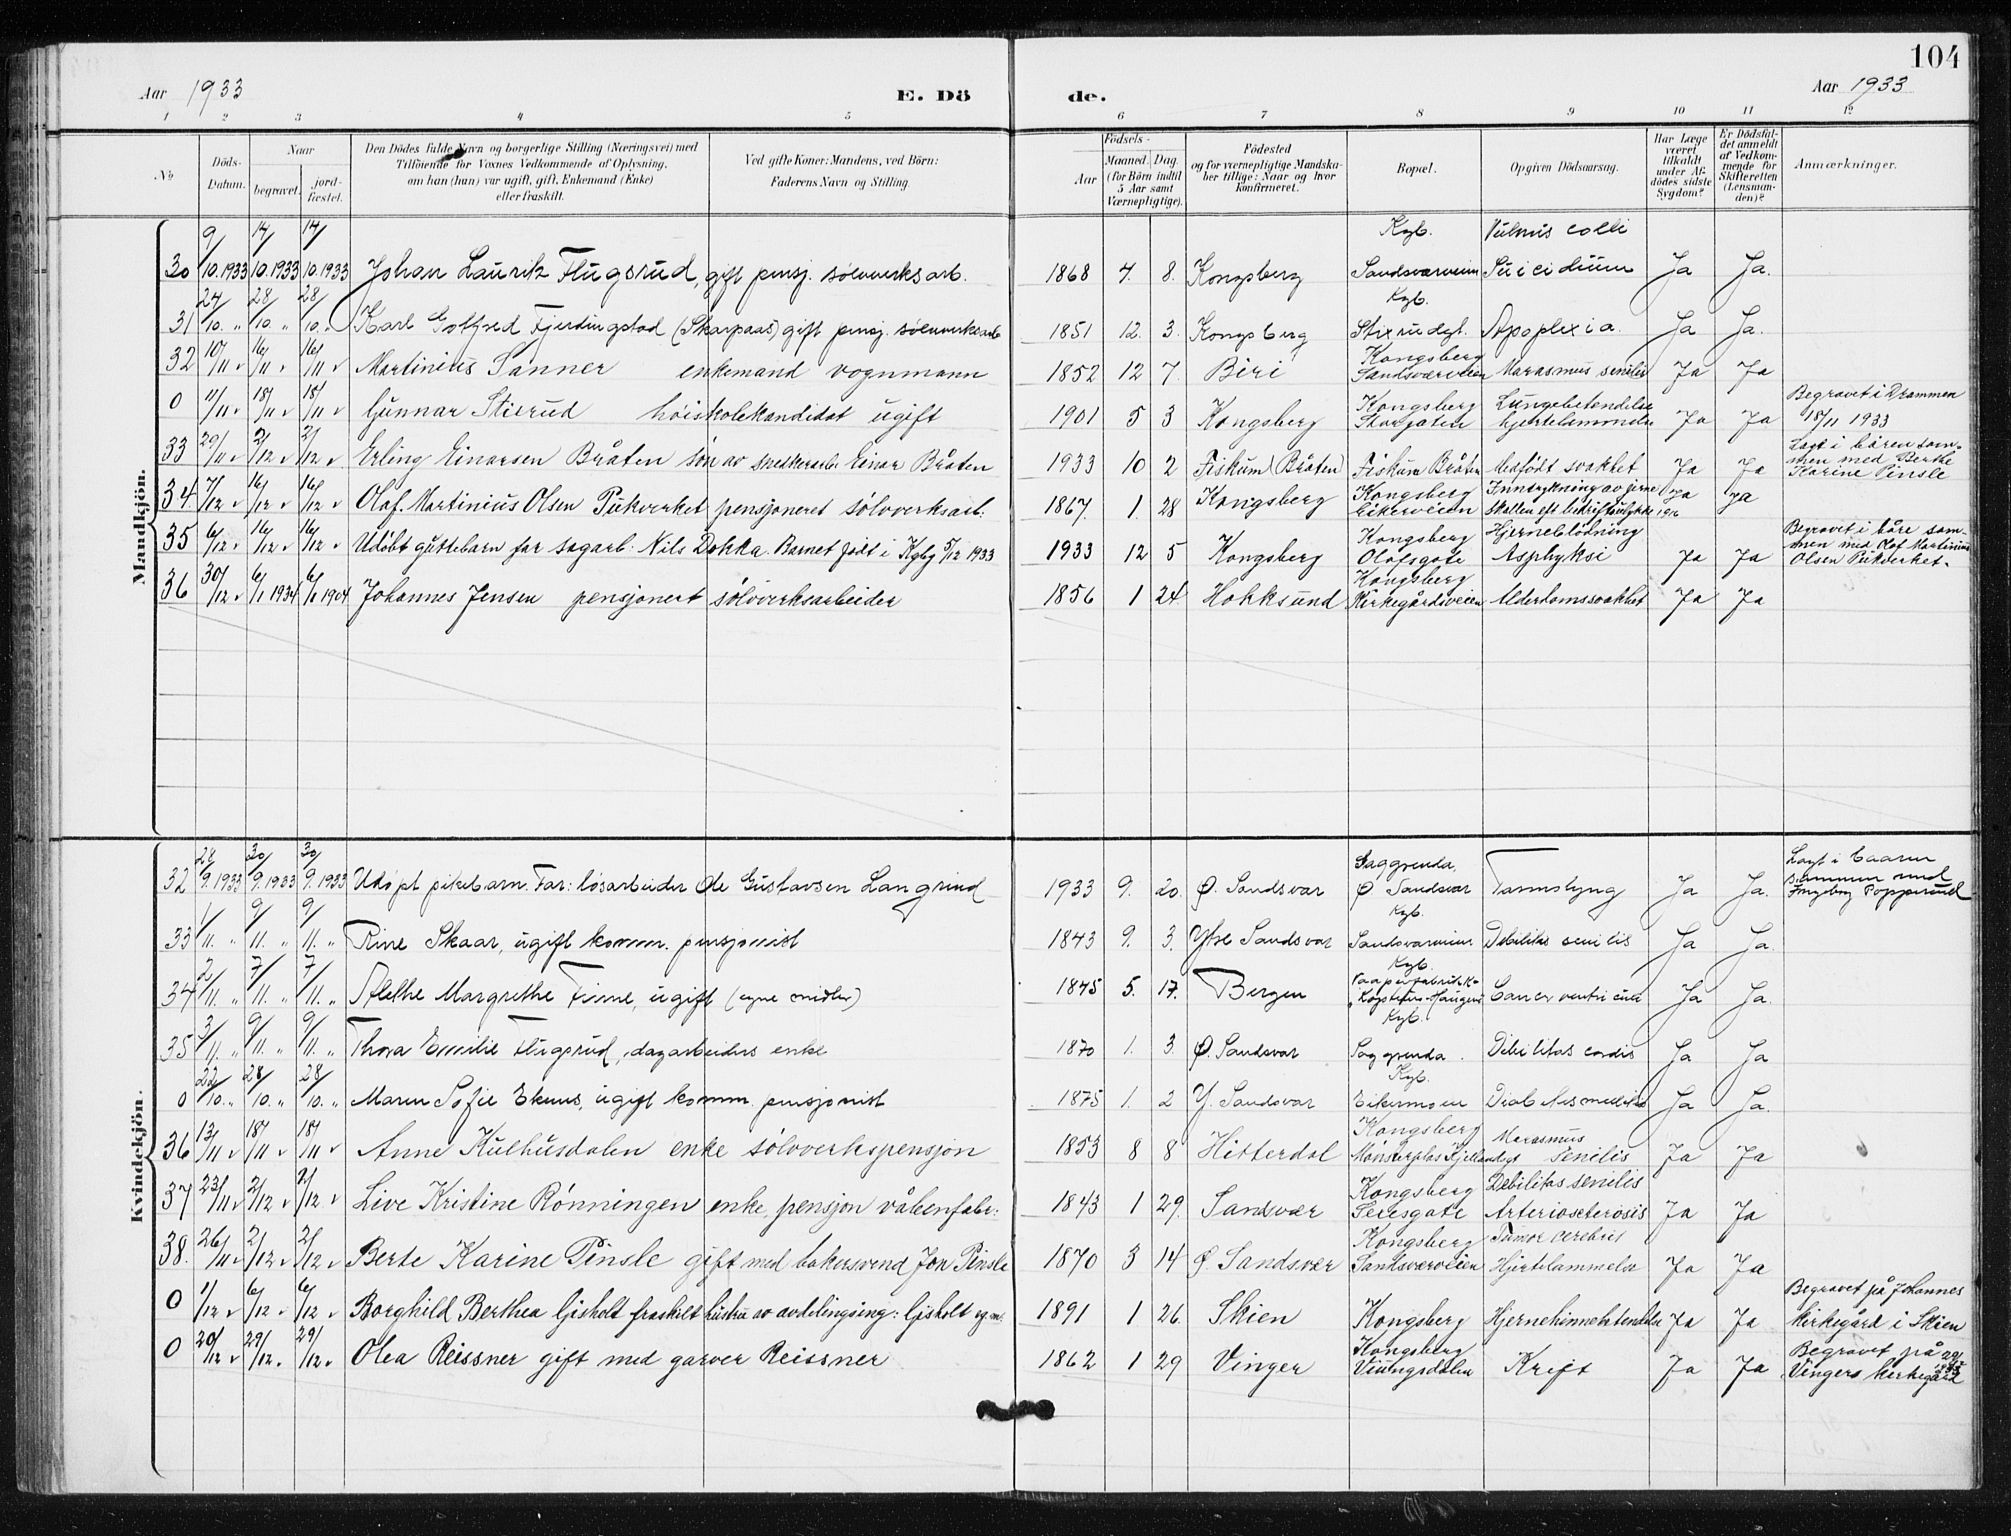 104
Aar 1933 E. Dö de. Aar 1933
1 2 3 4 5 6 7 8 9 10 11 12
No Döds-Datum. Naar begravet. jord-fæstet. Den Dödes fulde Navn og borgerlige Stilling (Næringsvei) med Tilföiende for Voxnes Vedkommende af Oplysning, om han (hun) var ugift, gift, Enkemand (Enke) eller fraskilt. Ved gifte Koner: Mandens, ved Börn: Faderens Navn og Stilling. Aar Födsels- Maaned. Dag. (for Börn indtil 5 Aar samt Værnepligtige). Födested og for værnepligtige Mandska-ber tillige: Naar og hvor konfirmeret. Bopæl. Opgiven Dödsaarsag. Har Læge været tilkaldt under Af-dödes sidste Sygdom? Er Dödsfal-det anmeldt af Vedkom-mende for Skifteretten (Lensman-den)? Anmærkninger.
Mandkjön.
30 9/10.1933 14/10.1933 14/10.1933 Johan Lauritz Flugsrud, gift pensj. sølvverksarb. 1868 7. 8. Kongsberg Kgb. Sandsværveien Vulnus colli Suicidium Ja Ja.
31 24/10. " 28/10. " 28/10. " Karl Gotfred Fjerdingstad (Skarpaas) gift pensj. sølvverksarb 1851 12. 3. Kongsberg Kgb. Stixrudgt. Apoplexia. Ja Ja.
32 10/11 " 16/11 " 16/11 " Martinius Sanner enkemand vognmann 1852 12 7. Biri Kongsberg Sandsværveien Marasmus senilis Ja Ja
0 11/11 " 18/11 " 18/11 " Gunnar Stixrud høiskolekandidat ugift 1901 5 3 Kongsberg Kongsberg Storgaten Lungebetendelse hjertelammelse Ja Ja Begravet i Drammen 18/11 1933
33 29/11 " 2/12 " 2/12 " Erling Einarsen Bråten søn av snekkerarb. Einar Bråten 1933 10 2 Fiskum (Bråten) Fiskum Bråten Medfødt svakhet Ja Ja Lagt i båren sam-men med Berthe Karine Pinsle
34 7/12 " 16/12 " 16/12 " Olaf Martinius Olsen Pukverket pensjoneret sølvverksarb. 1867. 1. 28 Kongsberg Kongsberg Eikerveien Inntrykning av hjerne skallen eft. bedriftsulykke 1916 Ja ja
35 6/12 " 16/12 " 16/12 " Udøbt guttebarn far sagarb. Nils Dokka. Barnet født i Kgbg 5/12 1933 1933 12 5 Kongsberg Kongsberg Olafsgate Hjerneblødning Asphyksi Ja Ja Begravet i båre sam-men med Olaf Martinius Olsen Pukverket.
36 30/12 " 6/1 1934 6/1 1904 Johannes Jensen pensjonert sølvverksarbeider 1856 1 24 Hokksund Kongsberg Kirkegårdsveien Alderdomssvakhet Ja Ja
Kvindekjön.
32 28/9.1933 30/9.1933 30/9.1933 Udøpt pikebarn. Far: løsarbeider Ole Gustavsen Langrind 1933 9. 20. Ø. Sandsvær Saggrenda, Ø Sandsvær Ja Ja. Lagt i baaren sammen med Ingeborg Popperud
33 1/11. " 9/11. " 9/11. " Rine Skaar, ugift komm. pensjonist 1843 9. 3. Ytre Sandsvær Kgb. Sandsværveien Debilitas senilis Ja Ja.
34 2/11. " 7/11. " 7/11. " Alethe Margrethe Finne, ugift (egne midler) 1845 5. 17. Bergen Kgb. Cancer ventriculi Ja Ja.
35 3/11. " 9/11. " 9/11. " Thora Emilie Flugsrud, dagarbeiders enke 1870 1. 3. Ø. Sandsvær Kgb. Saggrenda. Debilitas cordis Ja Ja
0 22/10. " 28/10. " 28/10. " Maren Sofie Ekenes, ugift komm. pensjonist 1875 1. 2 Y. Sandsvær Kgb. Eikermoen Diabetes mellitus Ja Ja.
36 13/11 " 18/11 " 18/11 " Anne Kulhusdalen enke sølvverkspensjon 1853 8 8 Hitterdal Kongsberg Mønsterplas Kjellandsgt Marasmus senilis Ja Ja
37 23/11 " 2/12 " 2/12 " Live Kristine Rønningen enke, pensjon våbenfabr: 1843 1 29. Sandsvær Kongsberg Seersgate Debilitas senilis Arteriosclerosis Ja Ja
38. 26/11 " 2/12 " 2/12 " Berte Karine Pinsle gift med bakersvend Jon Pinsle 1870 3 14 Ø. Sandsvær Kongsberg Sandsværveien Tumor cerebri Hjertelammelse Ja Ja
0 1/12 " 6/12 " 6/12 " Borghild Berthea Gisholt fraskilt hustru av avdelingsing: Gisholt 1891 1 26. Skien Kongsberg Hjernehinnebetendelse Ja Ja Begravet på Johannes kirkegård i Skien
0 20/12 " 29/12. 29/12 " Olea Reissner gift med garver Reissner 1862 1 29 Vinger Kongsberg Vinungsdalen Kreft Ja Ja Begravet på Vingers kirkegård 29/12